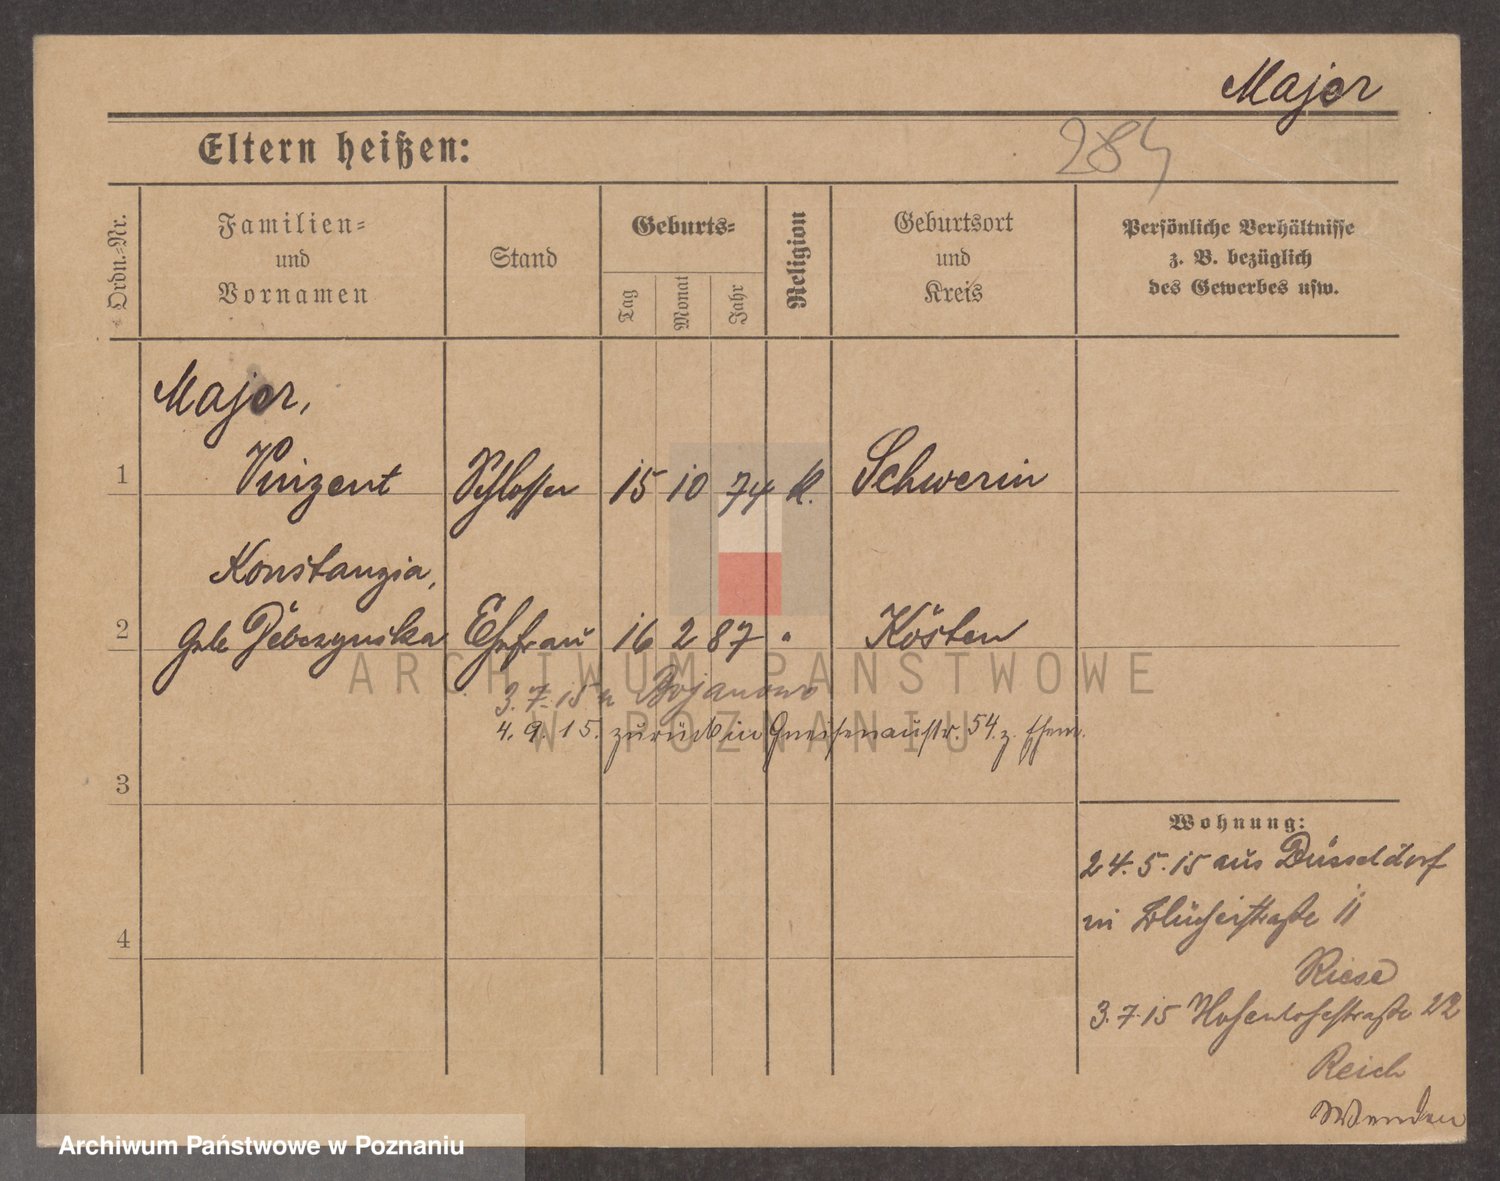 Major
284
Eltern heißen:
Ordn.=Nr.
Familien=
und
Vornamen
Stand
Geburts=
Tag
Monat
Jahr
Religion
Geburtsort
und
Kreis
Persönliche Verhältnisse
z. B. bezüglich
des Gewerbes usw.
Major,
1 Vinzent Schlosser 15 10 74 k. Schwerin
Konstanzia,
2 geb. Ehefrau 16 2 87 " Kosten
3.7.15 n Bojanowo
4.9.15. zurück in Gneisenaustr. 54. z. Ehem.
3
Wohnung:
24.5.15 aus Düsseldorf
in Blücherstraße 11
4
Riese
3.7.15 Hohenlohestraße 22
Reich
Wenden
ARCHIWUM PAŃSTWOWE
W POZNANIU
Archiwum Państwowe w Poznaniu